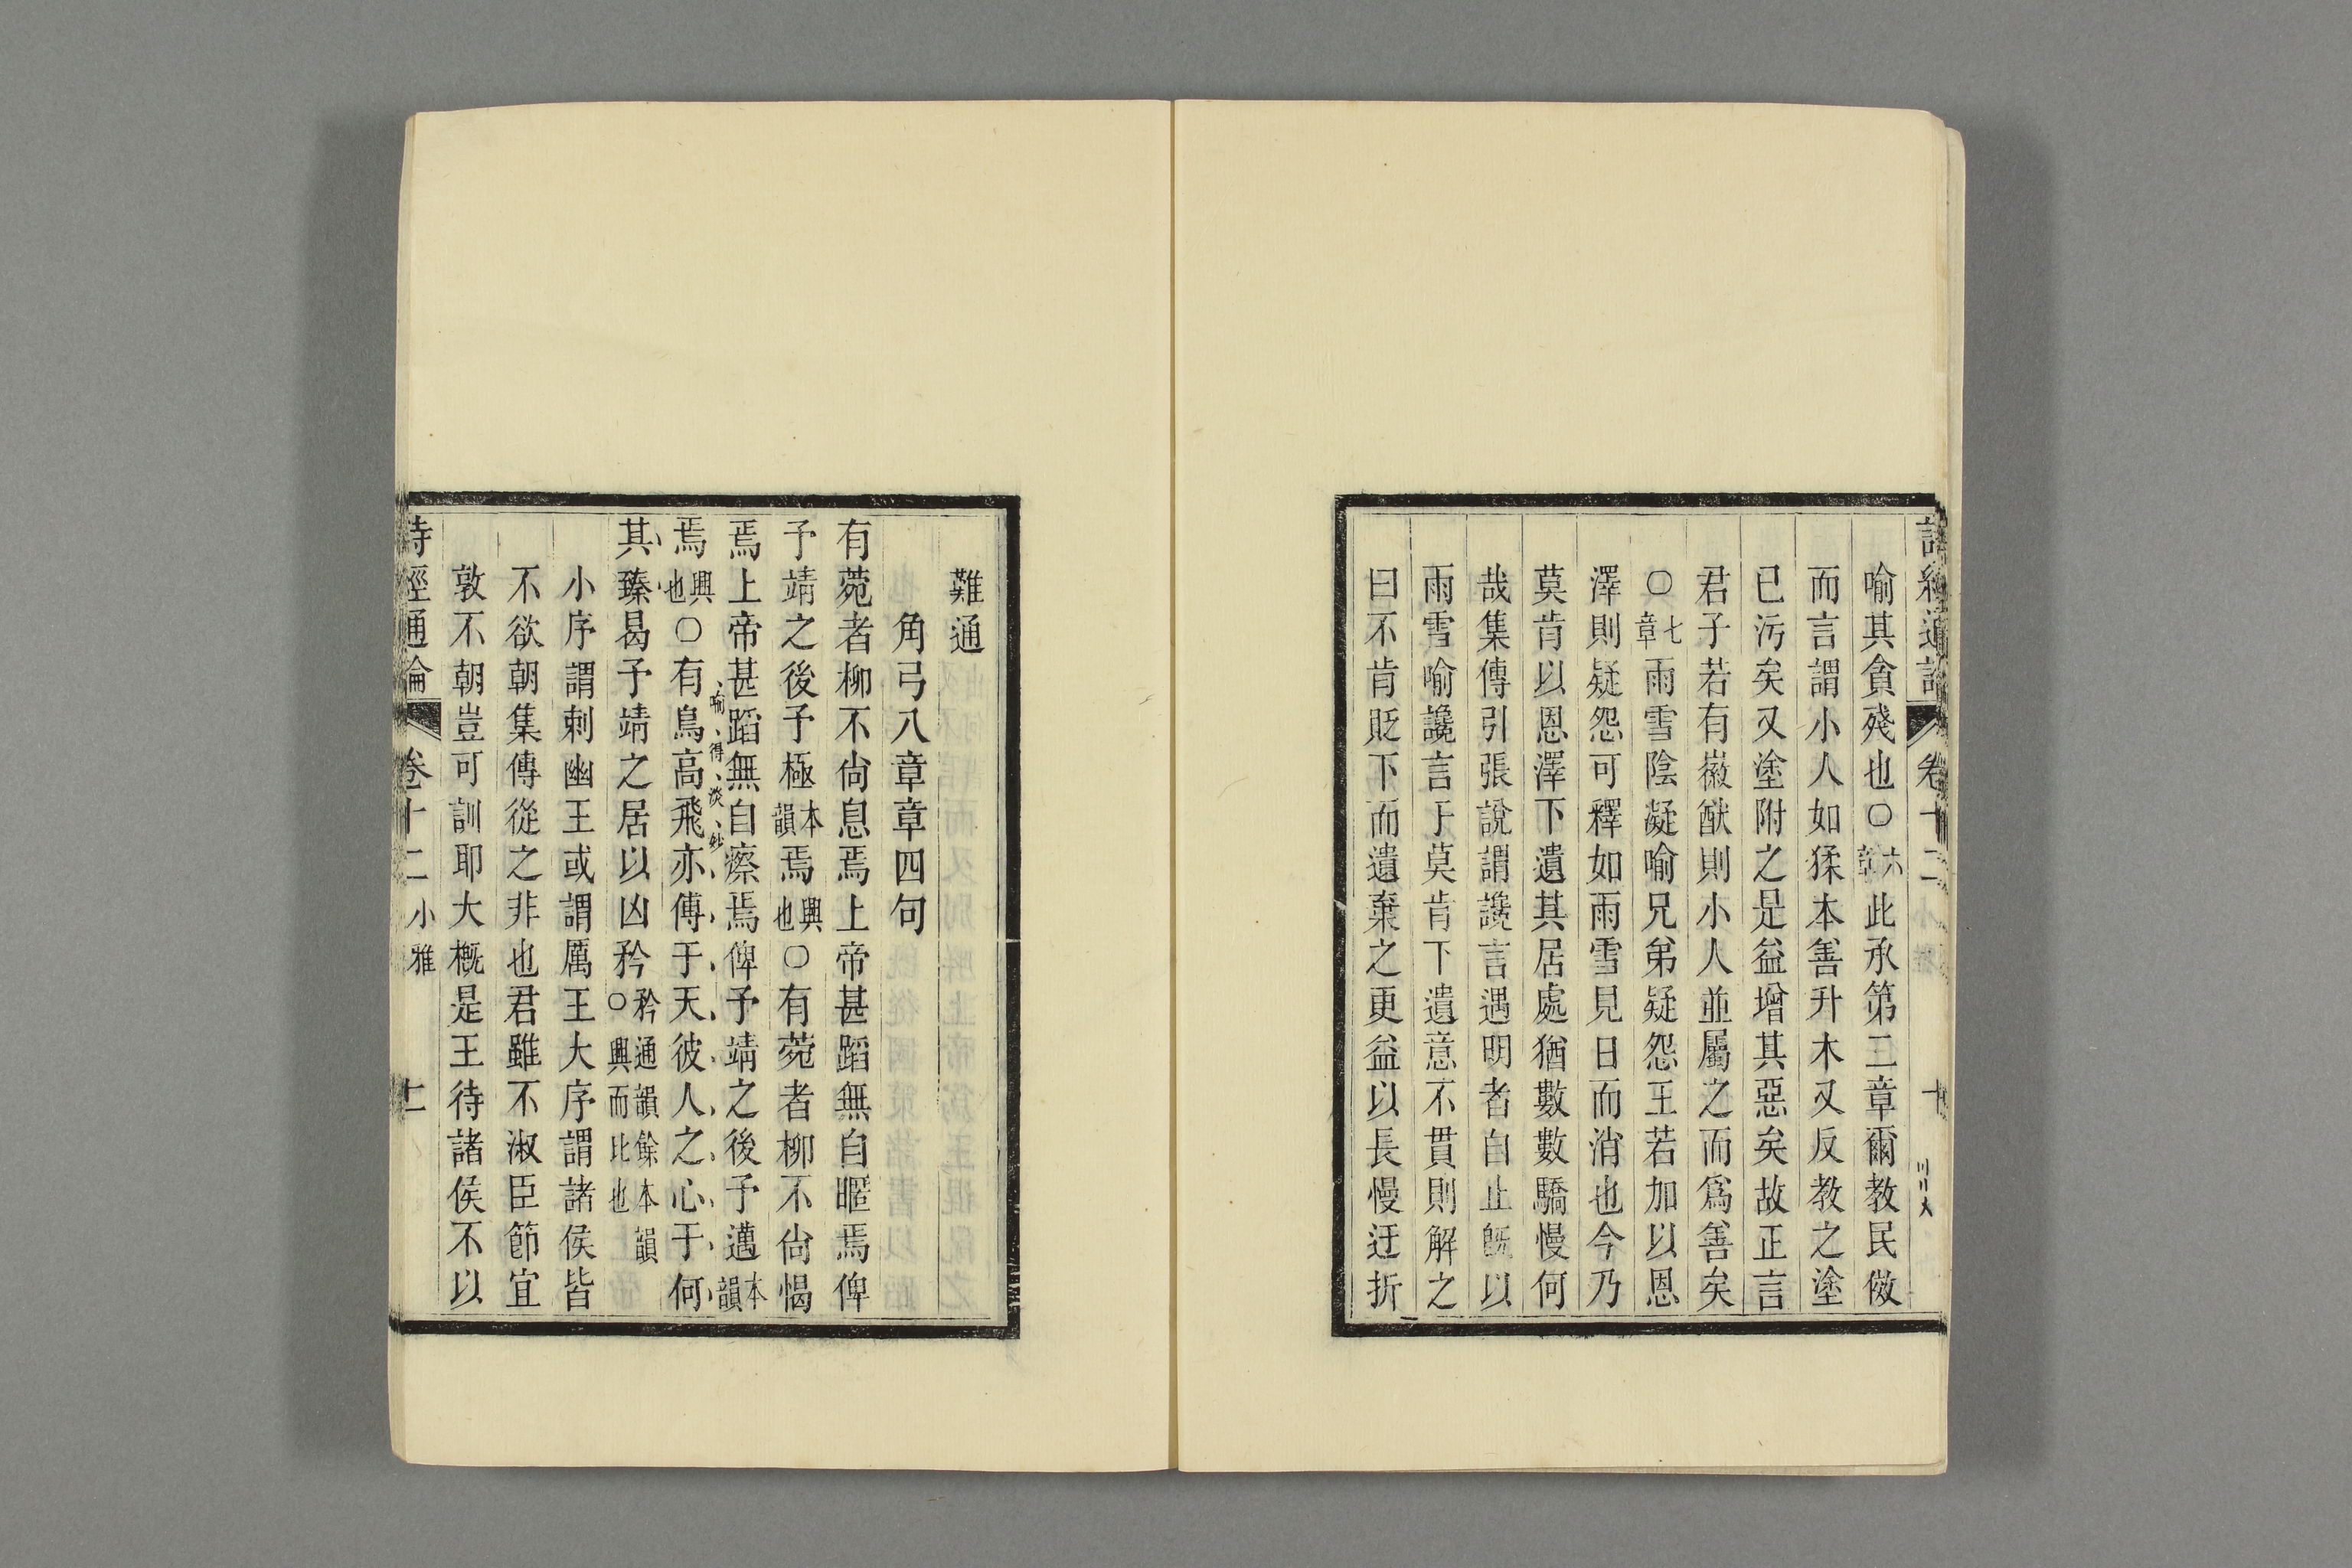 詩經通論 卷十二 小雅 十
喻其貪殘也○六章此承第二章爾教民傚
而言謂小人如猱本善升木又反教之塗
已污矣又塗附之是益增其惡矣故正言
君子若有徽猷則小人並屬之而爲善矣
○七章雨雪陰凝喻兄弟疑怨王若加以恩
澤則疑怨可釋如雨雪見日而消也今乃
莫肯以恩澤下遺其居處猶數數驕慢何
哉集傳引張說謂讒言遇明者自止旣以
雨雪喻讒言于莫肯下遺意不貫則解之
曰不肯貶下而遺棄之更益以長慢迂折
難通
角弓八章章四句
有菀者柳不尙息焉上帝甚蹈無自暱焉俾
予靖之後予極本韻焉興也○有菀者柳不尙愒
焉上帝甚蹈無自瘵焉俾予靖之後予邁本韻
焉興也○有鳥高飛亦傅于天彼人之心于何
喻得淡妙
其臻曷予靖之居以凶矜矜通韻餘本韻○興而比也
小序謂刺幽王或謂厲王大序謂諸侯皆
不欲朝集傳從之非也君雖不淑臣節宜
敦不朝豈可訓耶大概是王待諸侯不以
詩經通論 卷十二 小雅 十一